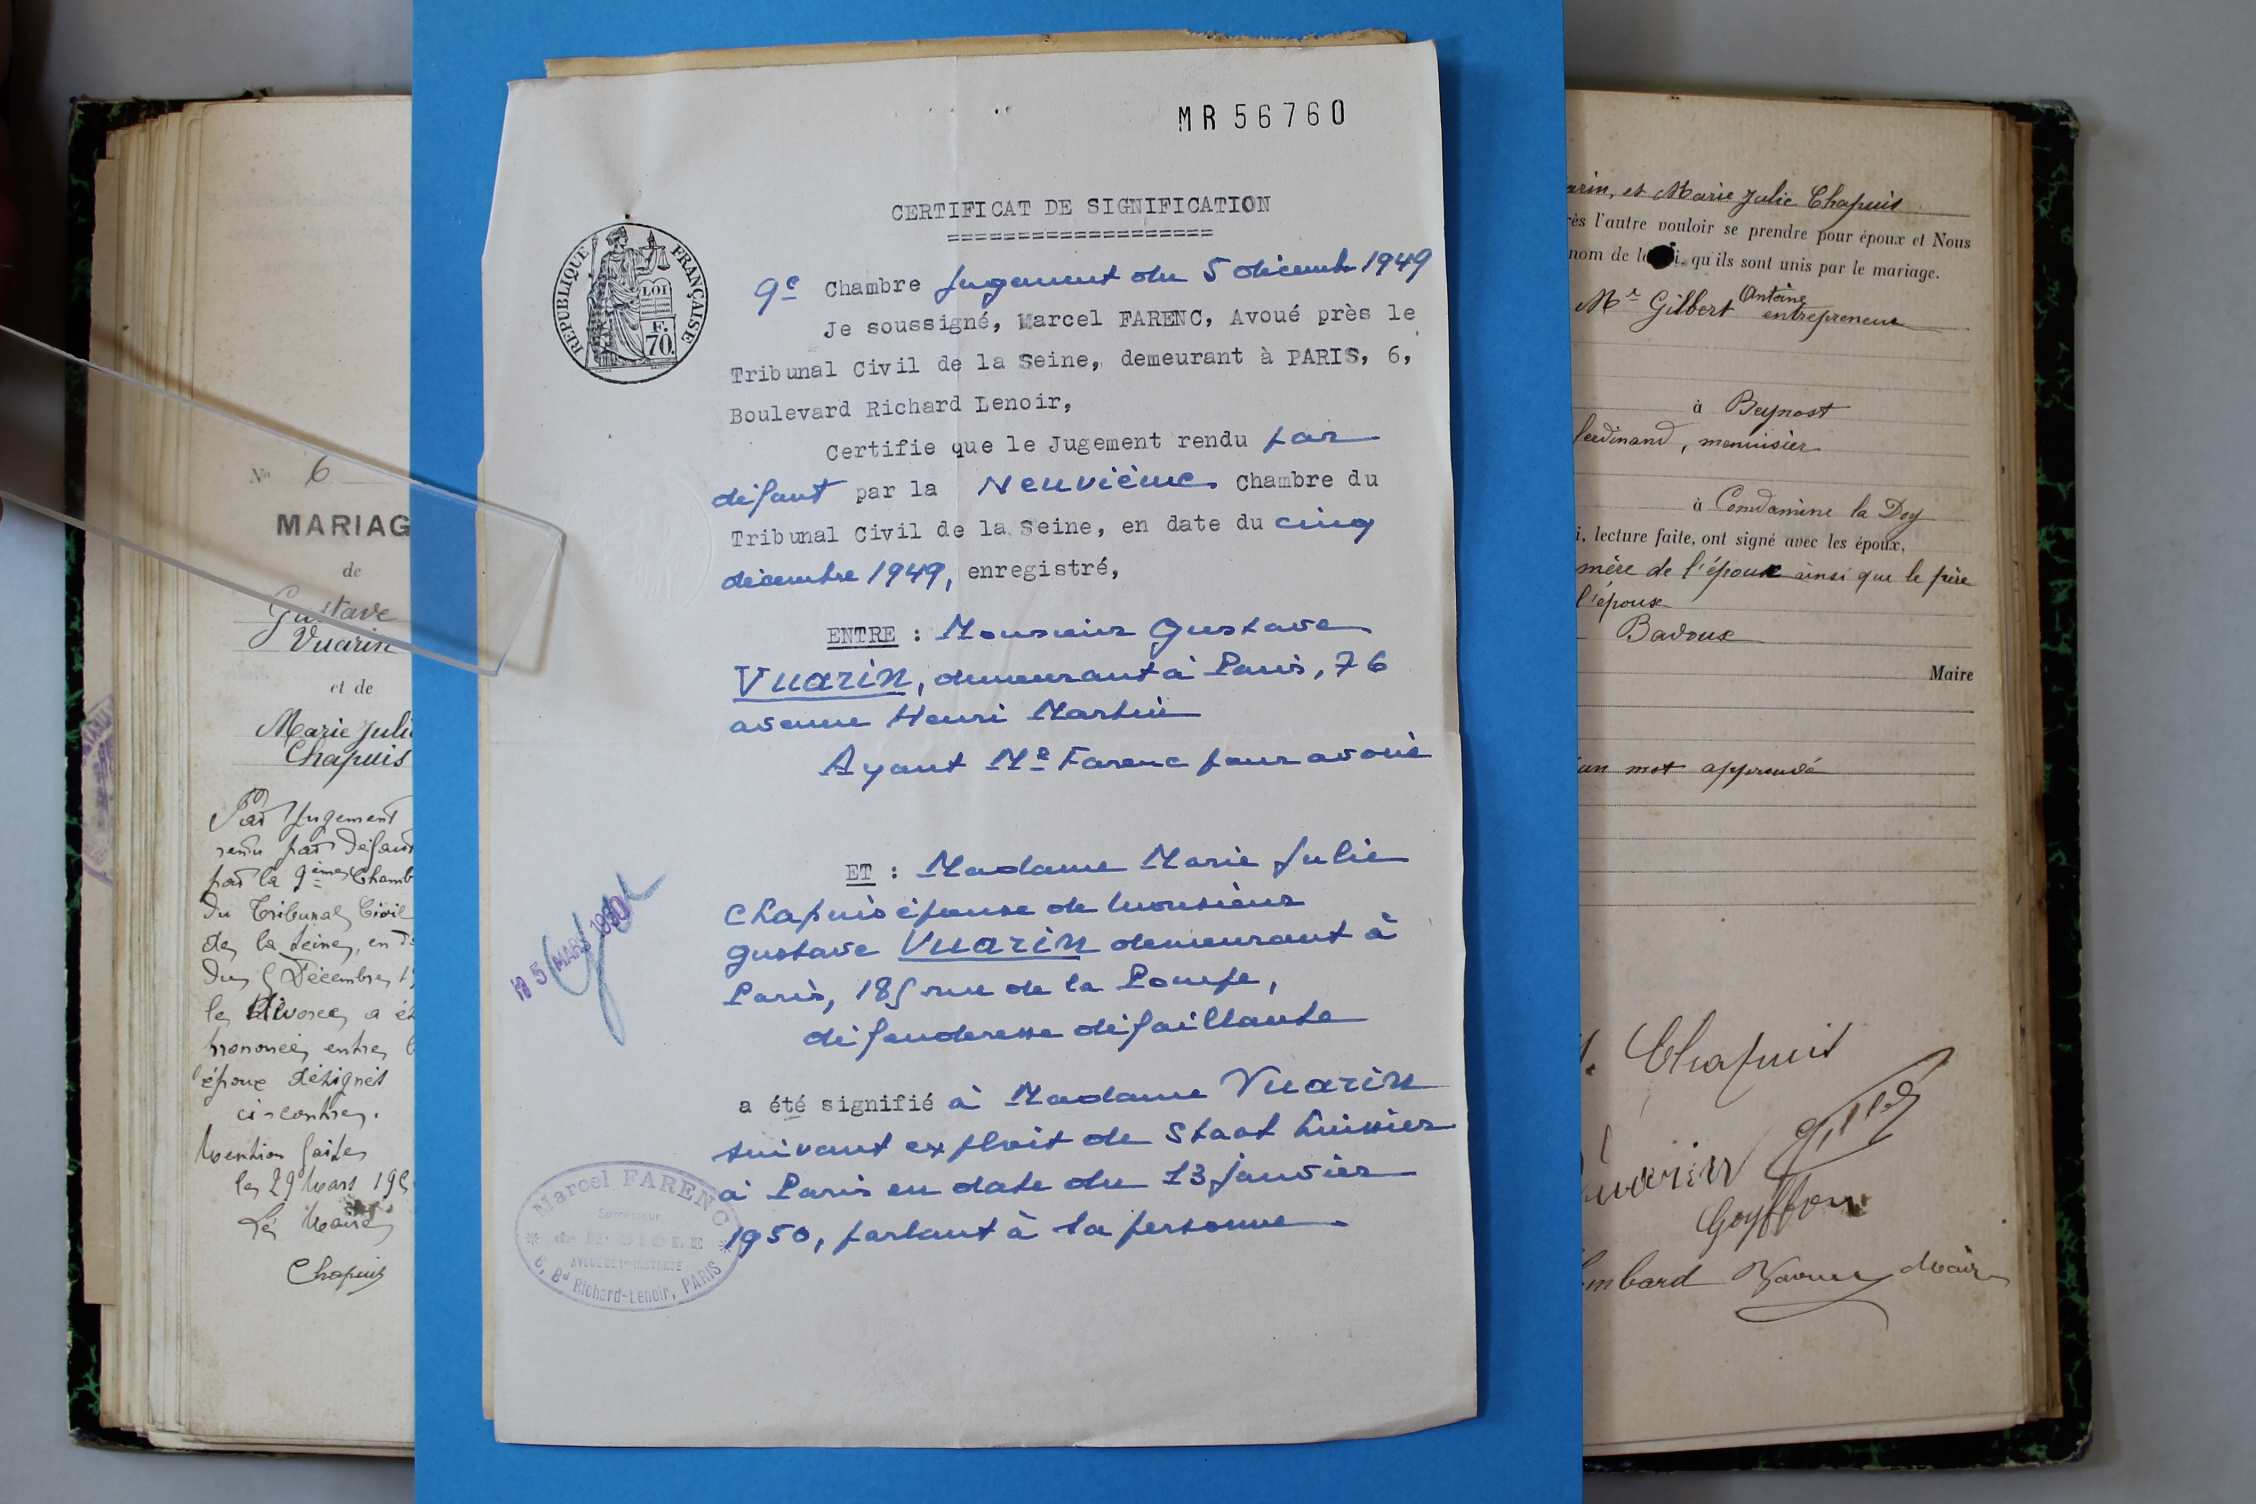 No 6
MARIAG
de
Gustave
Vuarin
et de
Marie Juli
Chapuis
Par Jugement
rendu par défaut
par la 9ème Chamb
du Tribunal Civil
de la Seine, en d
du 5 Décembre 19
le divorce a ét
prononcé entre l
époux désignés
ci-contre.
Mention faite
le 29 Mars 195
Le Maire
Chapuis
MR 56760
CERTIFICAT DE SIGNIFICATION
===================
RÉPUBLIQUE FRANÇAISE
LOI
F.
70.
9e Chambre Jugement du 5 décembre 1949
Je soussigné, Marcel FARENC, Avoué près le
Tribunal Civil de la Seine, demeurant à PARIS, 6,
Boulevard Richard Lenoir,
Certifie que le Jugement rendu par
défaut par la Neuvième Chambre du
Tribunal Civil de la Seine, en date du cinq
décembre 1949, enregistré,
ENTRE : Monsieur Gustave
VUARIN, demeurant à Paris, 76
avenue Henri Martin
Ayant Me Farenc pour avoué
ET : Madame Marie Julie
Chapuis épouse de Monsieur
Gustave VUARIN demeurant à
Paris, 185 rue de la Pompe,
défenderesse défaillante
a été signifié à Madame VUARIN
suivant exploit de Staat huissier
à Paris en date du 13 janvier
1950, parlant à la personne.
MARS 1950
Marcel FARENC
Successeur
AVOUÉ DE 1re INSTANCE
6, Bd Richard-Lenoir, PARIS
arin, et Marie Julie Chapuis
rès l'autre vouloir se prendre pour époux et Nous
nom de la loi, qu'ils sont unis par le mariage.
Mr Gilbert Antoine entrepreneur
à Beynost
ferdinand, menuisier
à Condamine la Doy
i, lecture faite, ont signé avec les époux,
mère de l'époux ainsi que le père
l'épouse
Badoux
Maire
un mot approuvé
Chapuis
Vuarin
Gilbert
Goyffon
mbard